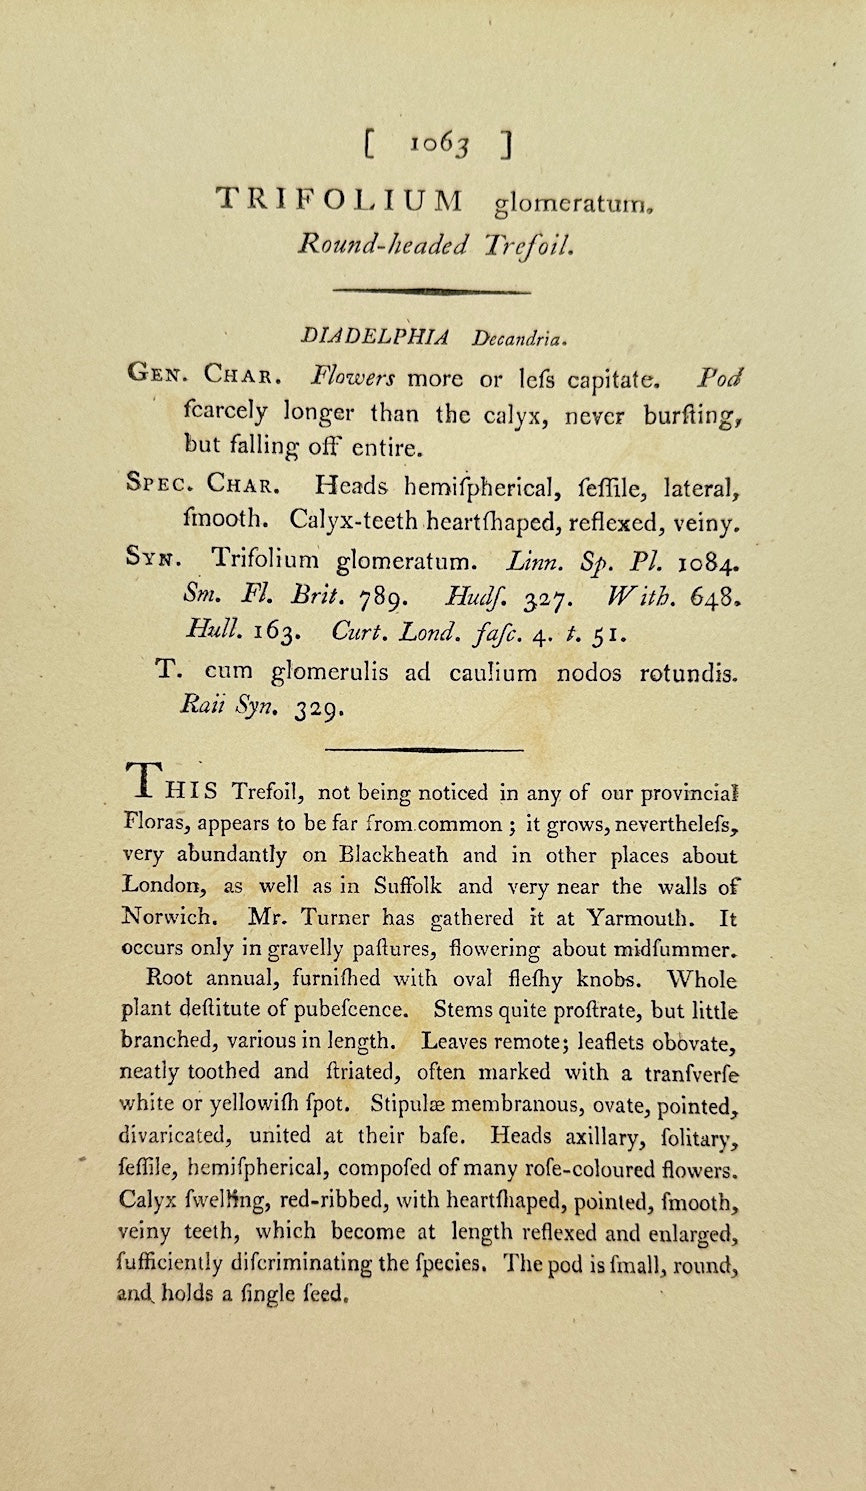 [ 1063 ]
TRIFOLIUM glomeratum.
Round-headed Trefoil.
DIADELPHIA Decandria.
GEN. CHAR. Flowers more or leſs capitate. Pod
ſcarcely longer than the calyx, never burſting,
but falling off entire.
SPEC. CHAR. Heads hemiſpherical, ſeſſile, lateral,
ſmooth. Calyx-teeth heartſhaped, reflexed, veiny.
SYN. Trifolium glomeratum. Linn. Sp. Pl. 1084.
Sm. Fl. Brit. 789. Hudſ. 327. With. 648.
Hull. 163. Curt. Lond. faſc. 4. t. 51.
T. cum glomerulis ad caulium nodos rotundis.
Raii Syn. 329.
THIS Trefoil, not being noticed in any of our provincial
Floras, appears to be far from common ; it grows, nevertheleſs,
very abundantly on Blackheath and in other places about
London, as well as in Suffolk and very near the walls of
Norwich. Mr. Turner has gathered it at Yarmouth. It
occurs only in gravelly paſtures, flowering about midſummer.
Root annual, furniſhed with oval fleſhy knobs. Whole
plant deſtitute of pubeſcence. Stems quite proſtrate, but little
branched, various in length. Leaves remote; leaflets obovate,
neatly toothed and ſtriated, often marked with a tranſverſe
white or yellowiſh ſpot. Stipulæ membranous, ovate, pointed,
divaricated, united at their baſe. Heads axillary, ſolitary,
ſeſſile, hemiſpherical, compoſed of many roſe-coloured flowers.
Calyx ſwelling, red-ribbed, with heartſhaped, pointed, ſmooth,
veiny teeth, which become at length reflexed and enlarged,
ſufficiently diſcriminating the ſpecies. The pod is ſmall, round,
and holds a ſingle ſeed.